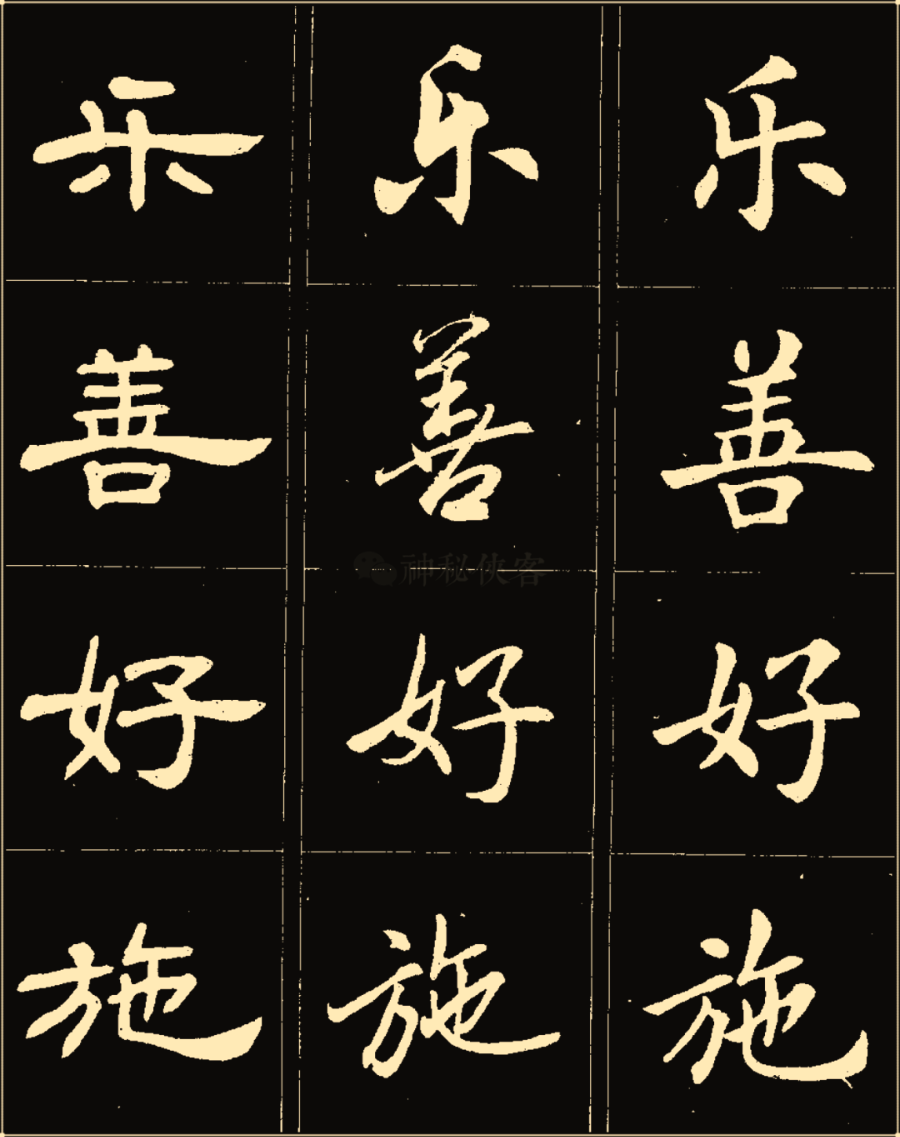 乐 乐 乐
善 善 善
好 好 好
施 施 施
神秘侠客